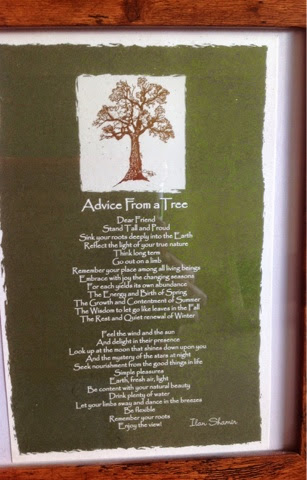 Advice From a Tree
Dear Friend
Stand Tall and Proud
Sink your roots deeply into the Earth
Reflect the light of your true nature
Think long term
Go out on a limb
Remember your place among all living beings
Embrace with joy the changing seasons
For each yields its own abundance
The Energy and Birth of Spring
The Growth and Contentment of Summer
The Wisdom to let go like leaves in the Fall
The Rest and Quiet renewal of Winter
Feel the wind and the sun
And delight in their presence
Look up at the moon that shines down upon you
And the mystery of the stars at night
Seek nourishment from the good things in life
Simple pleasures
Earth, fresh air, light
Be content with your natural beauty
Drink plenty of water
Let your limbs sway and dance in the breezes
Be flexible
Remember your roots
Enjoy the view!
Ilan Shamir